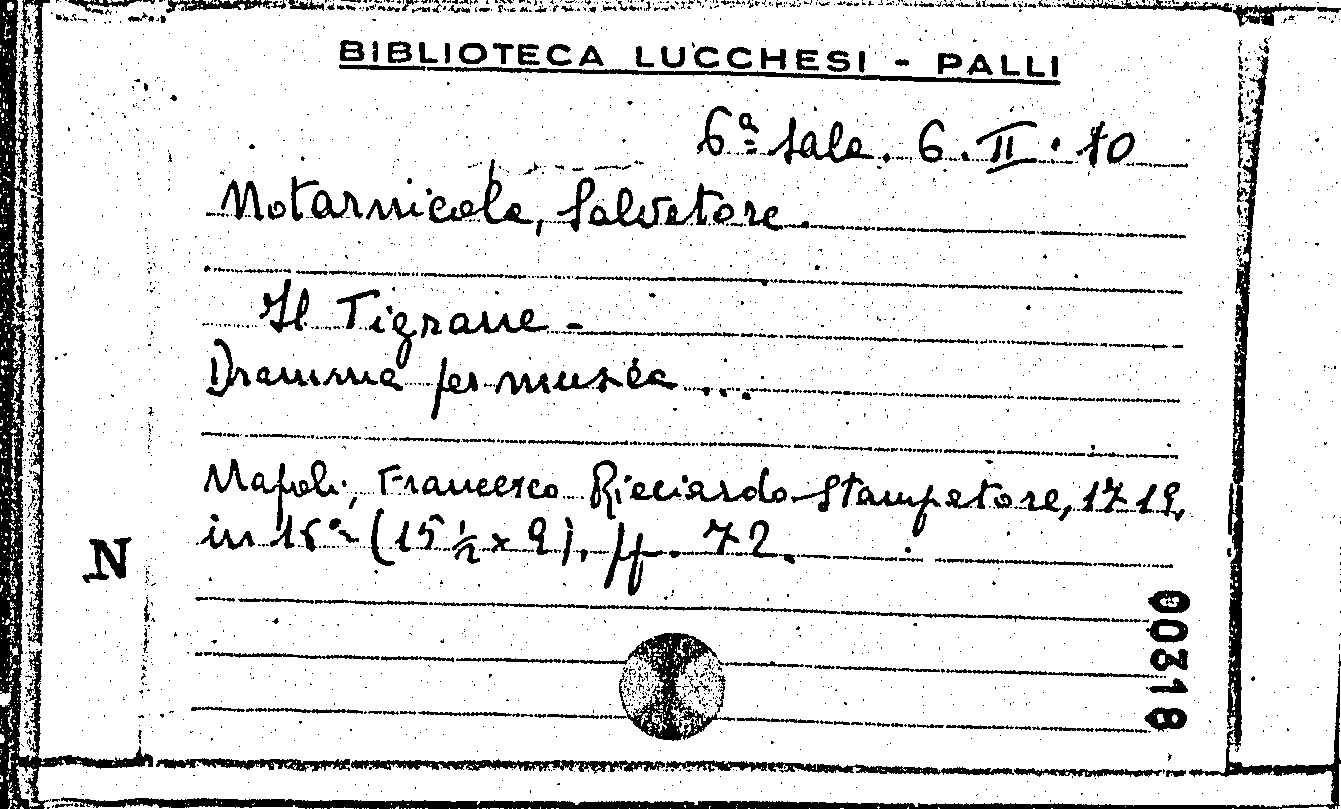 BIBLIOTECA LUCCHESI - PALLI
6ª Sala. 6. II. 10
Notarnicola, Salvatore.
Il Tigrane -
Dramma per musica ...
Napoli, Francesco Ricciardo Stampatore, 1719,
in 16° (15 ½ x 9), pp. 72.
N
00318